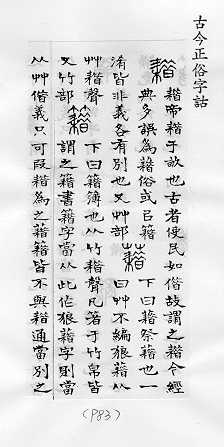 古今正俗字詁
耤
耤帝耤千畝也古者使民如借故謂之耤今經
典多誤為藉俗或㠯籍 藉 下曰藉祭藉也一
淆皆非義各有別也又艸部 曰艸不編狼藉从
艸耤聲 籍 下曰籍簿也从竹耤聲凡箸于竹帛皆
又竹部 謂之籍書籍字當从此作狼藉字則當
从艸借義只可叚耤為之藉籍皆不與耤通當別之
(P83)